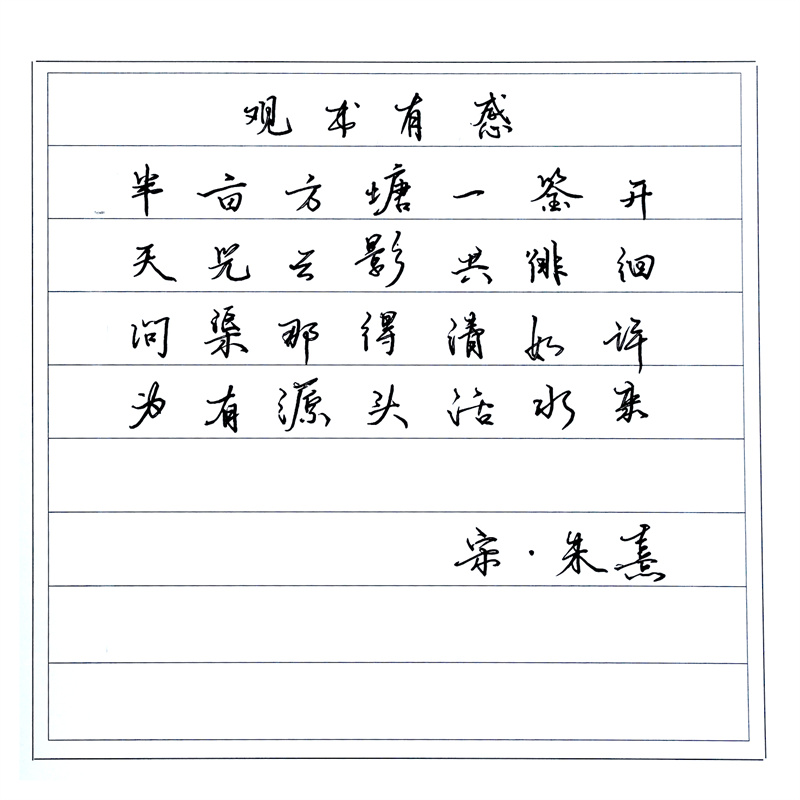 观书有感
半亩方塘一鉴开
天光云影共徘徊
问渠那得清如许
为有源头活水来
宋·朱熹